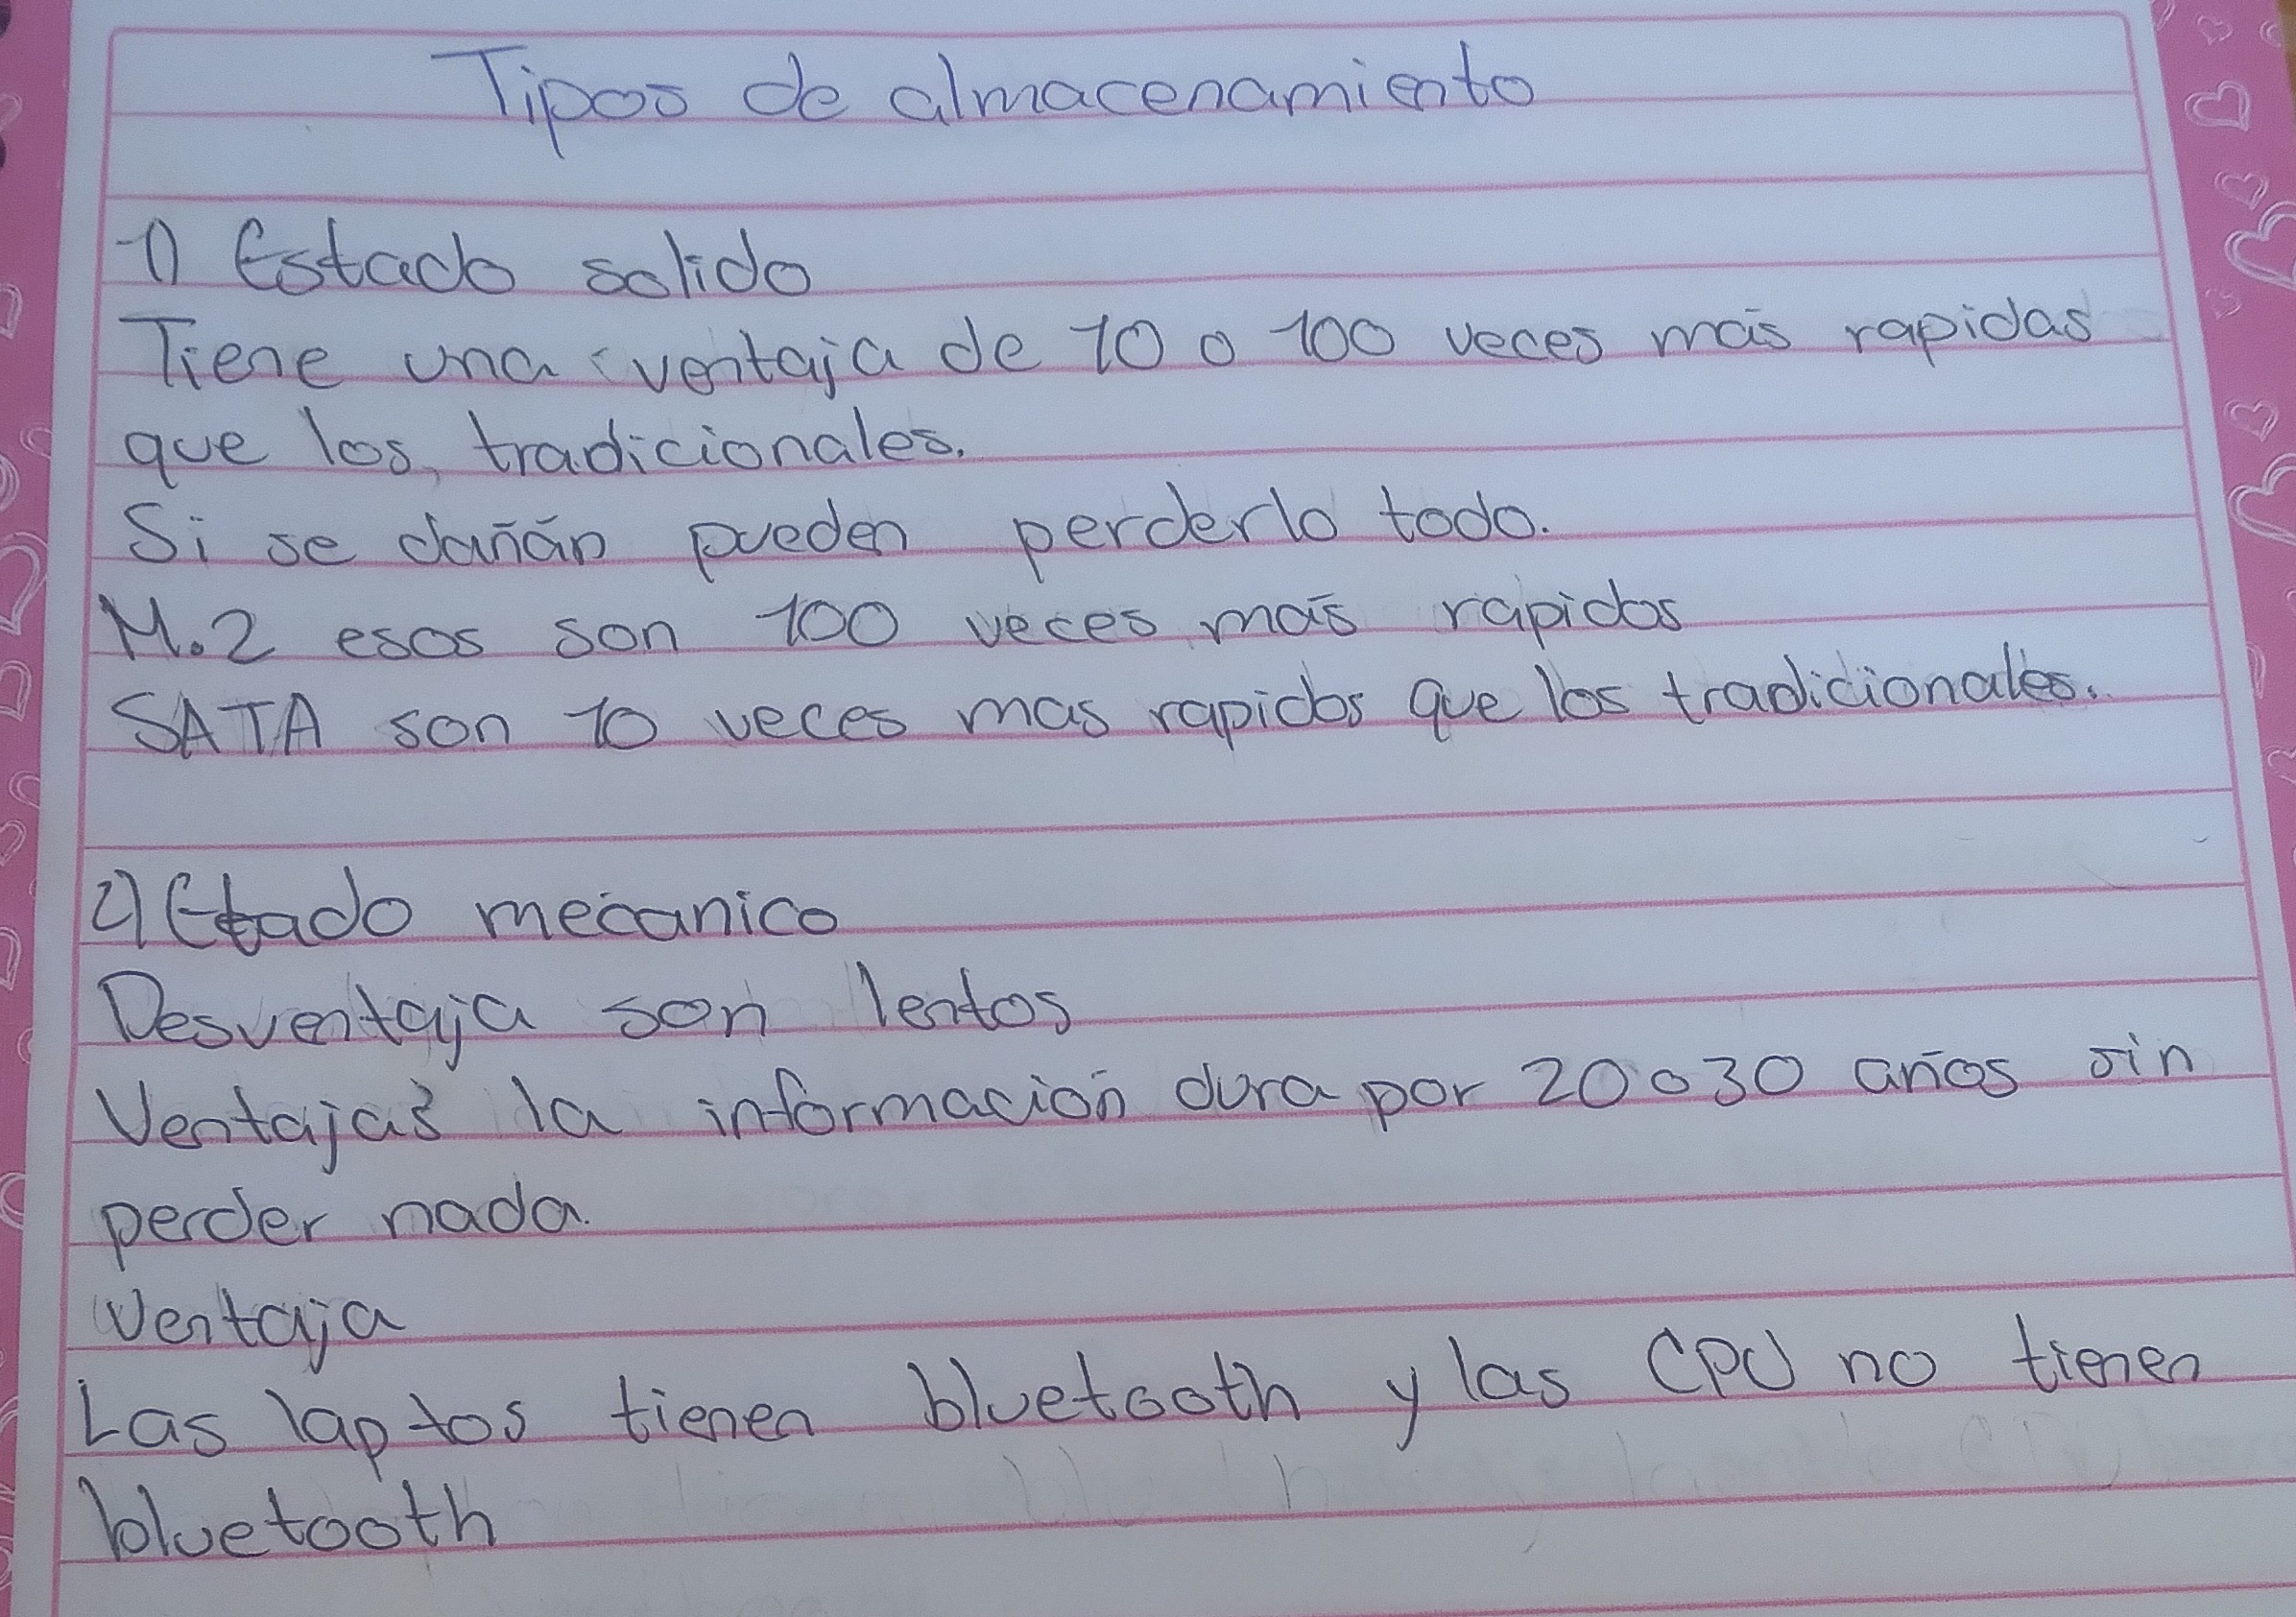 Tipos de almacenamiento
1) Estado solido
Tiene una ventaja de 10 o 100 veces más rapidas
que los, tradicionales.
Si se dañán pueden perderlo todo.
M.2 esos son 100 veces más rapidos
SATA son 10 veces mas rapidos que los tradicionales.
2) Etado mecanico
Desventaja son lentos
Ventajas la información dura por 20 o 30 años sin
perder nada.
Ventaja
Las laptos tienen bluetooth y las CPU no tienen
bluetooth